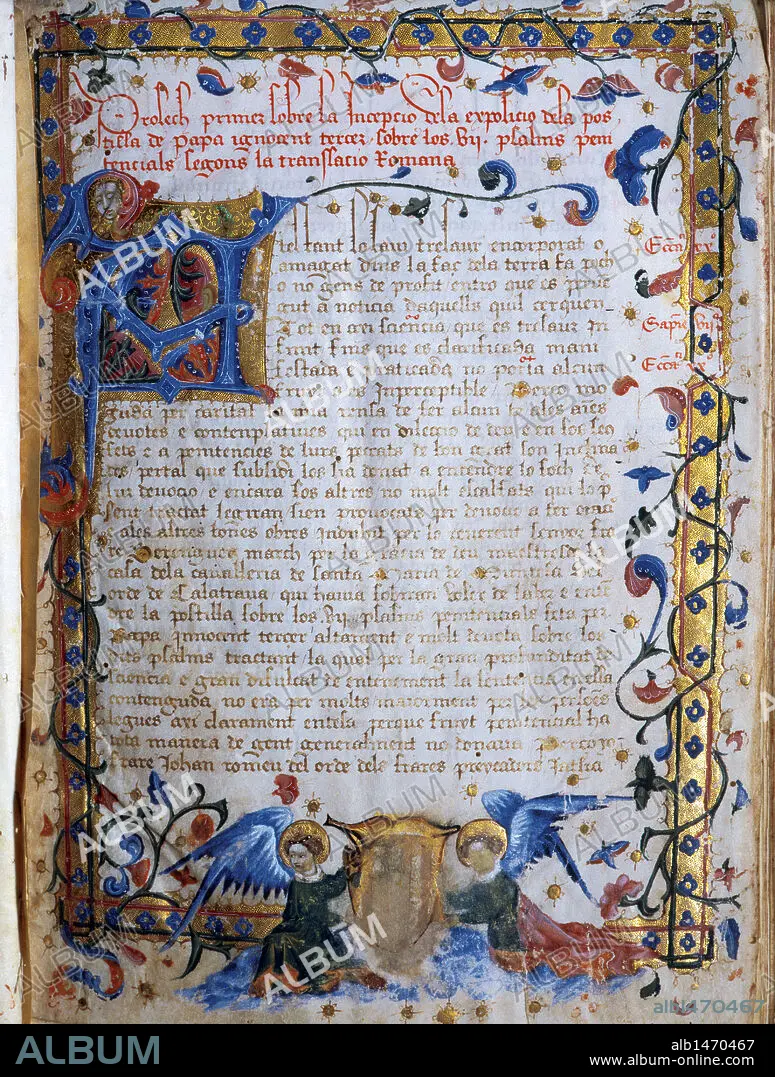 Prolech primer sobre la Incepcio dela expolicio dela pos,
tilla de Papa ignocent tercer, sobre los .vij. psalms peni
tencials segons la translacio Romana
Estant lo tresaur encorporat o
amagat dins la faç dela terra fa poch
o no gens de profit entro que es pue
gut a noticia daquells quil cerquen
Tot en axi sciencia que es tresaur In
finit fins que es clarificada mani
festada praticada no porta alcun
Inpreceptible Perço mo
guda per caritat la mia pensa de fer alcun
deuotes e contenplatiues qui en dileccio de deu
sets e a penitencies de lurs peccats de bon cor son Inclina
des, pertal que subsidi los sia donat a entendre lo foch de
lur deuocio e encara los altres no molt escalfats qui lo p
sent tractat legiran sien prouocats per deuocio a fer
tals altres bones obres Induhit per lo reuerent senyor fra
re Berenguer march per la gracia de deu maestre de la
casa dela caualleria de santa Maria de Muntesa del
orde de Calatraua, qui hauia sobiran voler de saber e enten
dre la postilla sobre los .vij. psalms penitencials feta per
Papa Innocent tercer altament e molt deuota sobre los
dits psalms tractant, la qual per la gran profunditat de
sciencia e gran dificultat de enteniment la sentencia en ella
contenguda, no era per molts maiorment per persones
legues axi clarament entesa perque fruyt penitencial ha
tota manera de gent generalment no donaua Perço yo
frare Johan romeu del orde dels frares preycadors
Eccª. xxº.
Sapiē. vijº.
Eccª. xxº.
ALBUM
alb1470467
ALBUM
alb1470467
www.album-online.com